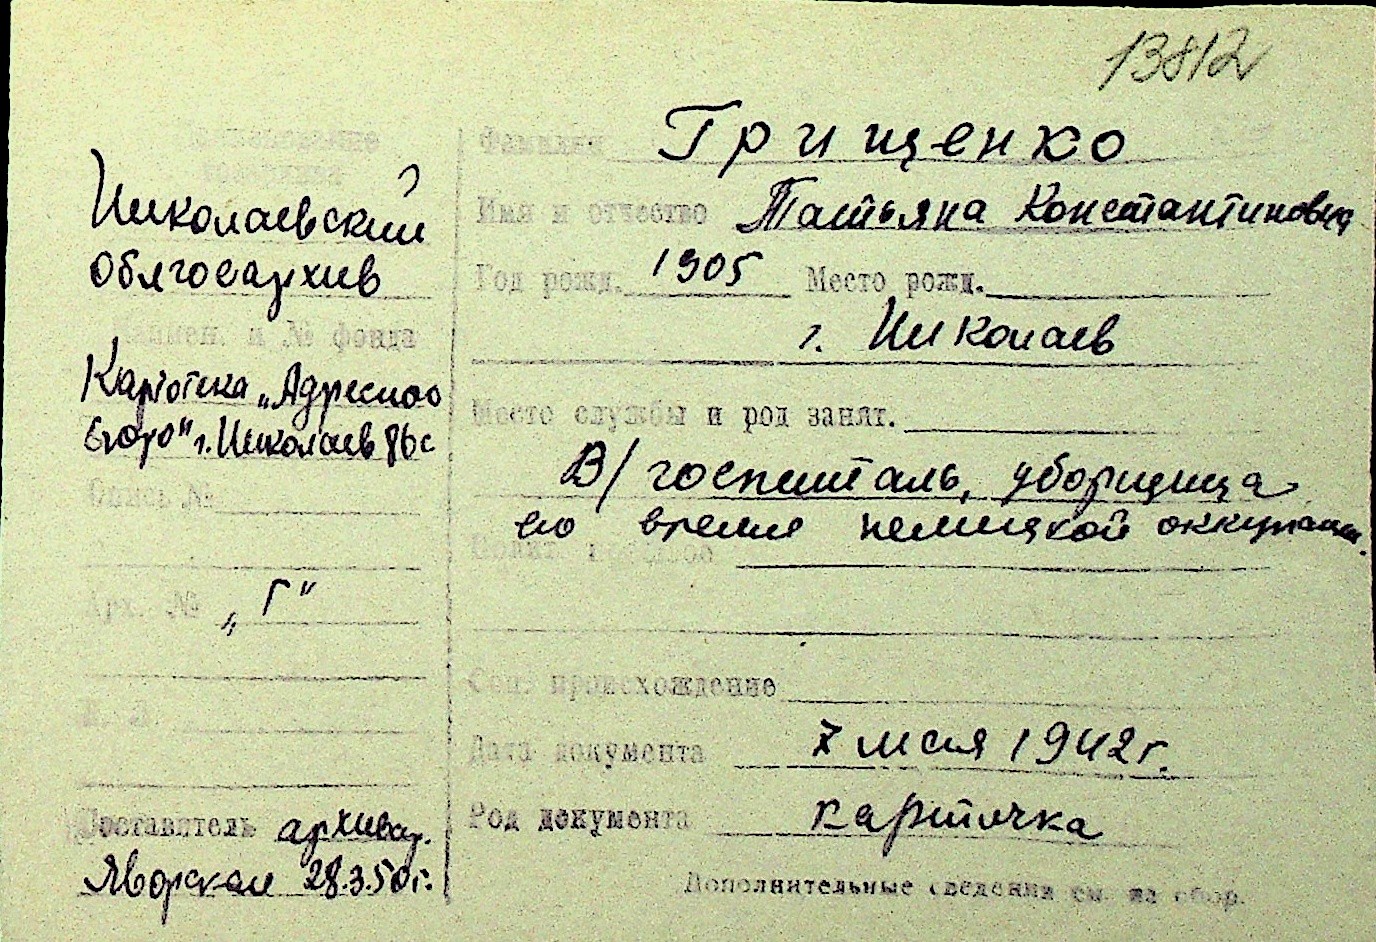 13812
Наименование
госархива
Николаевский
облгосархив
Наимен. и № фонда
Картотека "Адресного
бюро" г. Николаев
Опись №
Арх. № "Г"
Составитель архивар.
Яворская 28.3.50г.
Фамилия Грищенко
Имя и отчество Татьяна Константиновна
Год рожд. 1905 Место рожд.
г. Николаев
Место службы и род занят.
В/госпиталь, уборщица
во время немецкой оккупации.
Соц. происхождение
Дата документа 7 мая 1942г.
Род документа карточка
Дополнительные сведения см. на обор.